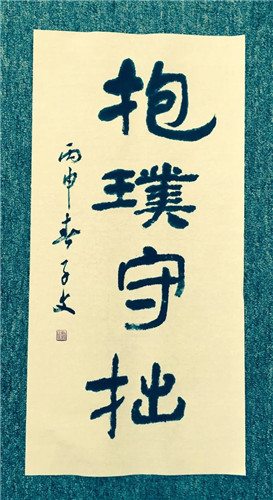 抱璞守拙
丙申春子文